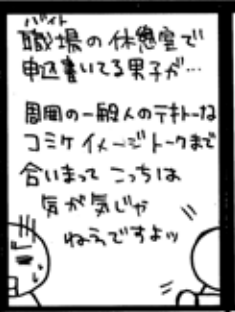 バイト
職場の休憩室で
申込書いてる男子が…
周囲の一般人のテキトーな
コミケイメージトークまで
合いまって こっちは
気が気じゃ
ねえですよッ